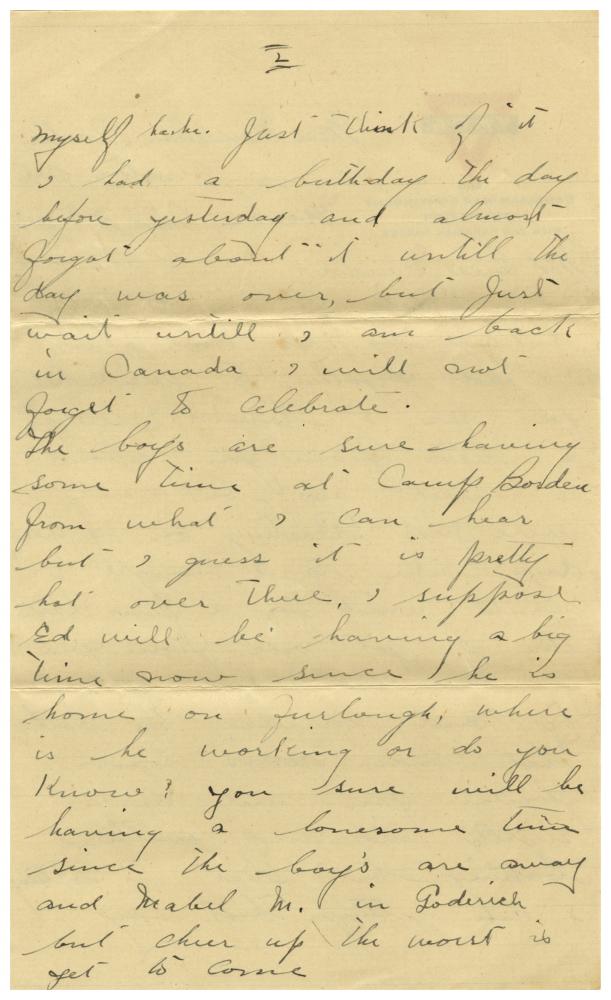 2
myself haha. Just think of it
I had a birthday the day
before yesterday and almost
forgot about it untill the
day was over, but Just
wait untill I am back
in Canada I will not
forget to celebrate.
The boy's are sure having
some time at Camp Borden
from what I can hear
but I guess it is pretty
hot over there, I suppose
Ed will be having a big
time now since he is
home on furlough, where
is he working or do you
Know? you sure will be
having a lonesome time
since the boy's are away
and Mabel M. in Goderich
but cheer up the worst is
yet to come